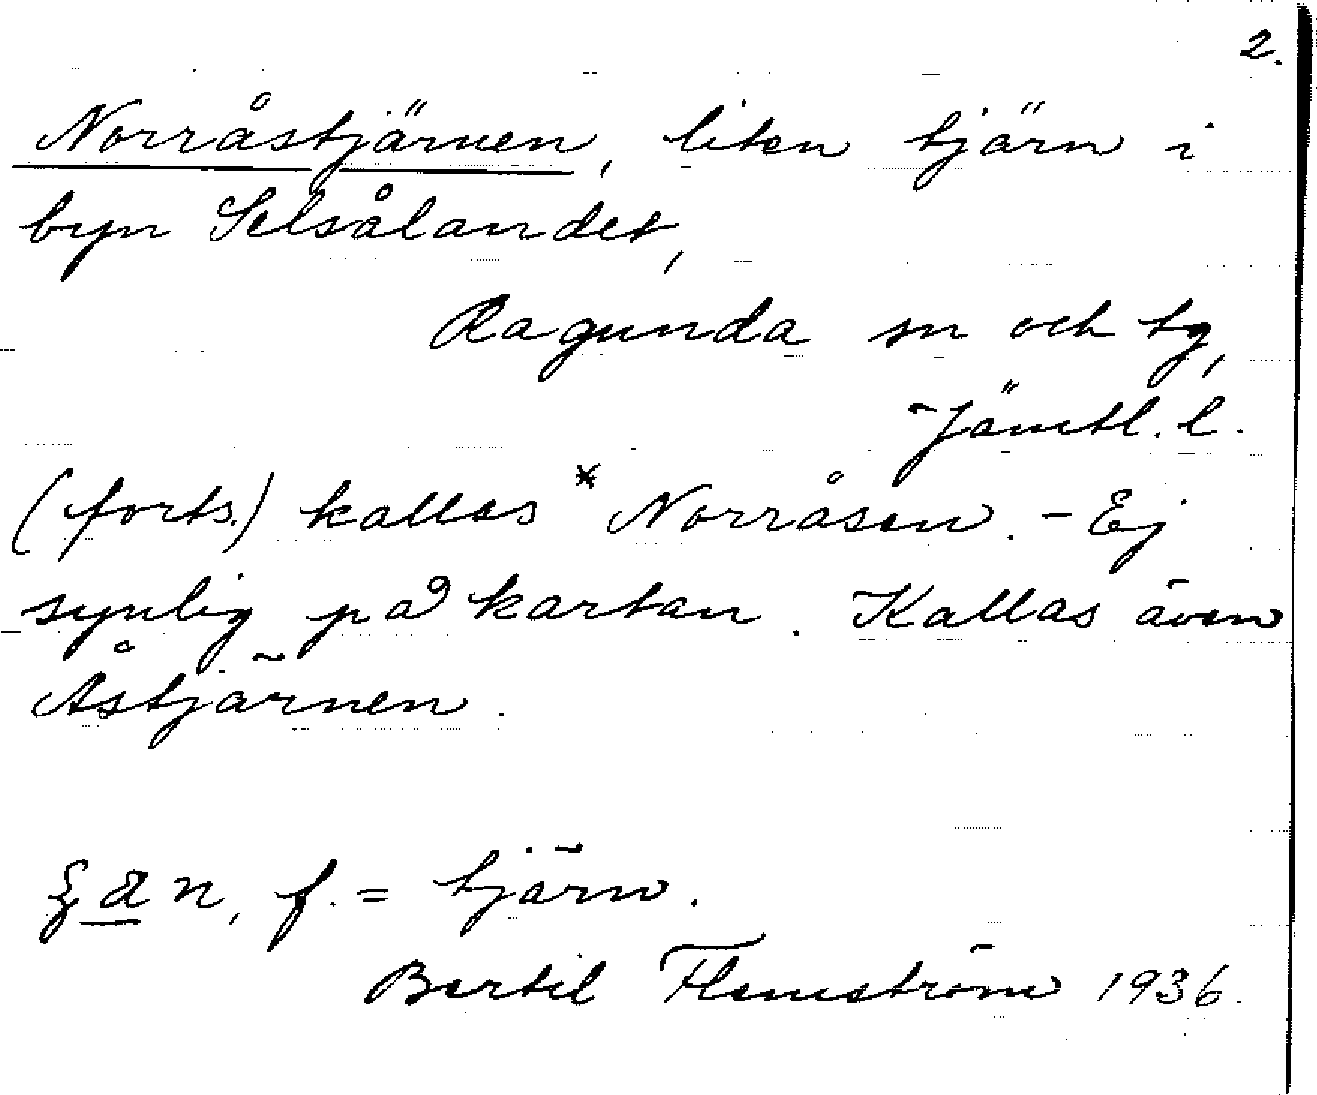 2.
Norråstjärnen, liten tjärn i
byn Selsålandet,
Ragunda sn och tg,
Jämtl. l.
(forts.) kallas *Norråsen. - Ej
synlig på kartan. Kallas även
Åstjärnen.
n, f. = tjärn.
Bertil Flemström 1936.